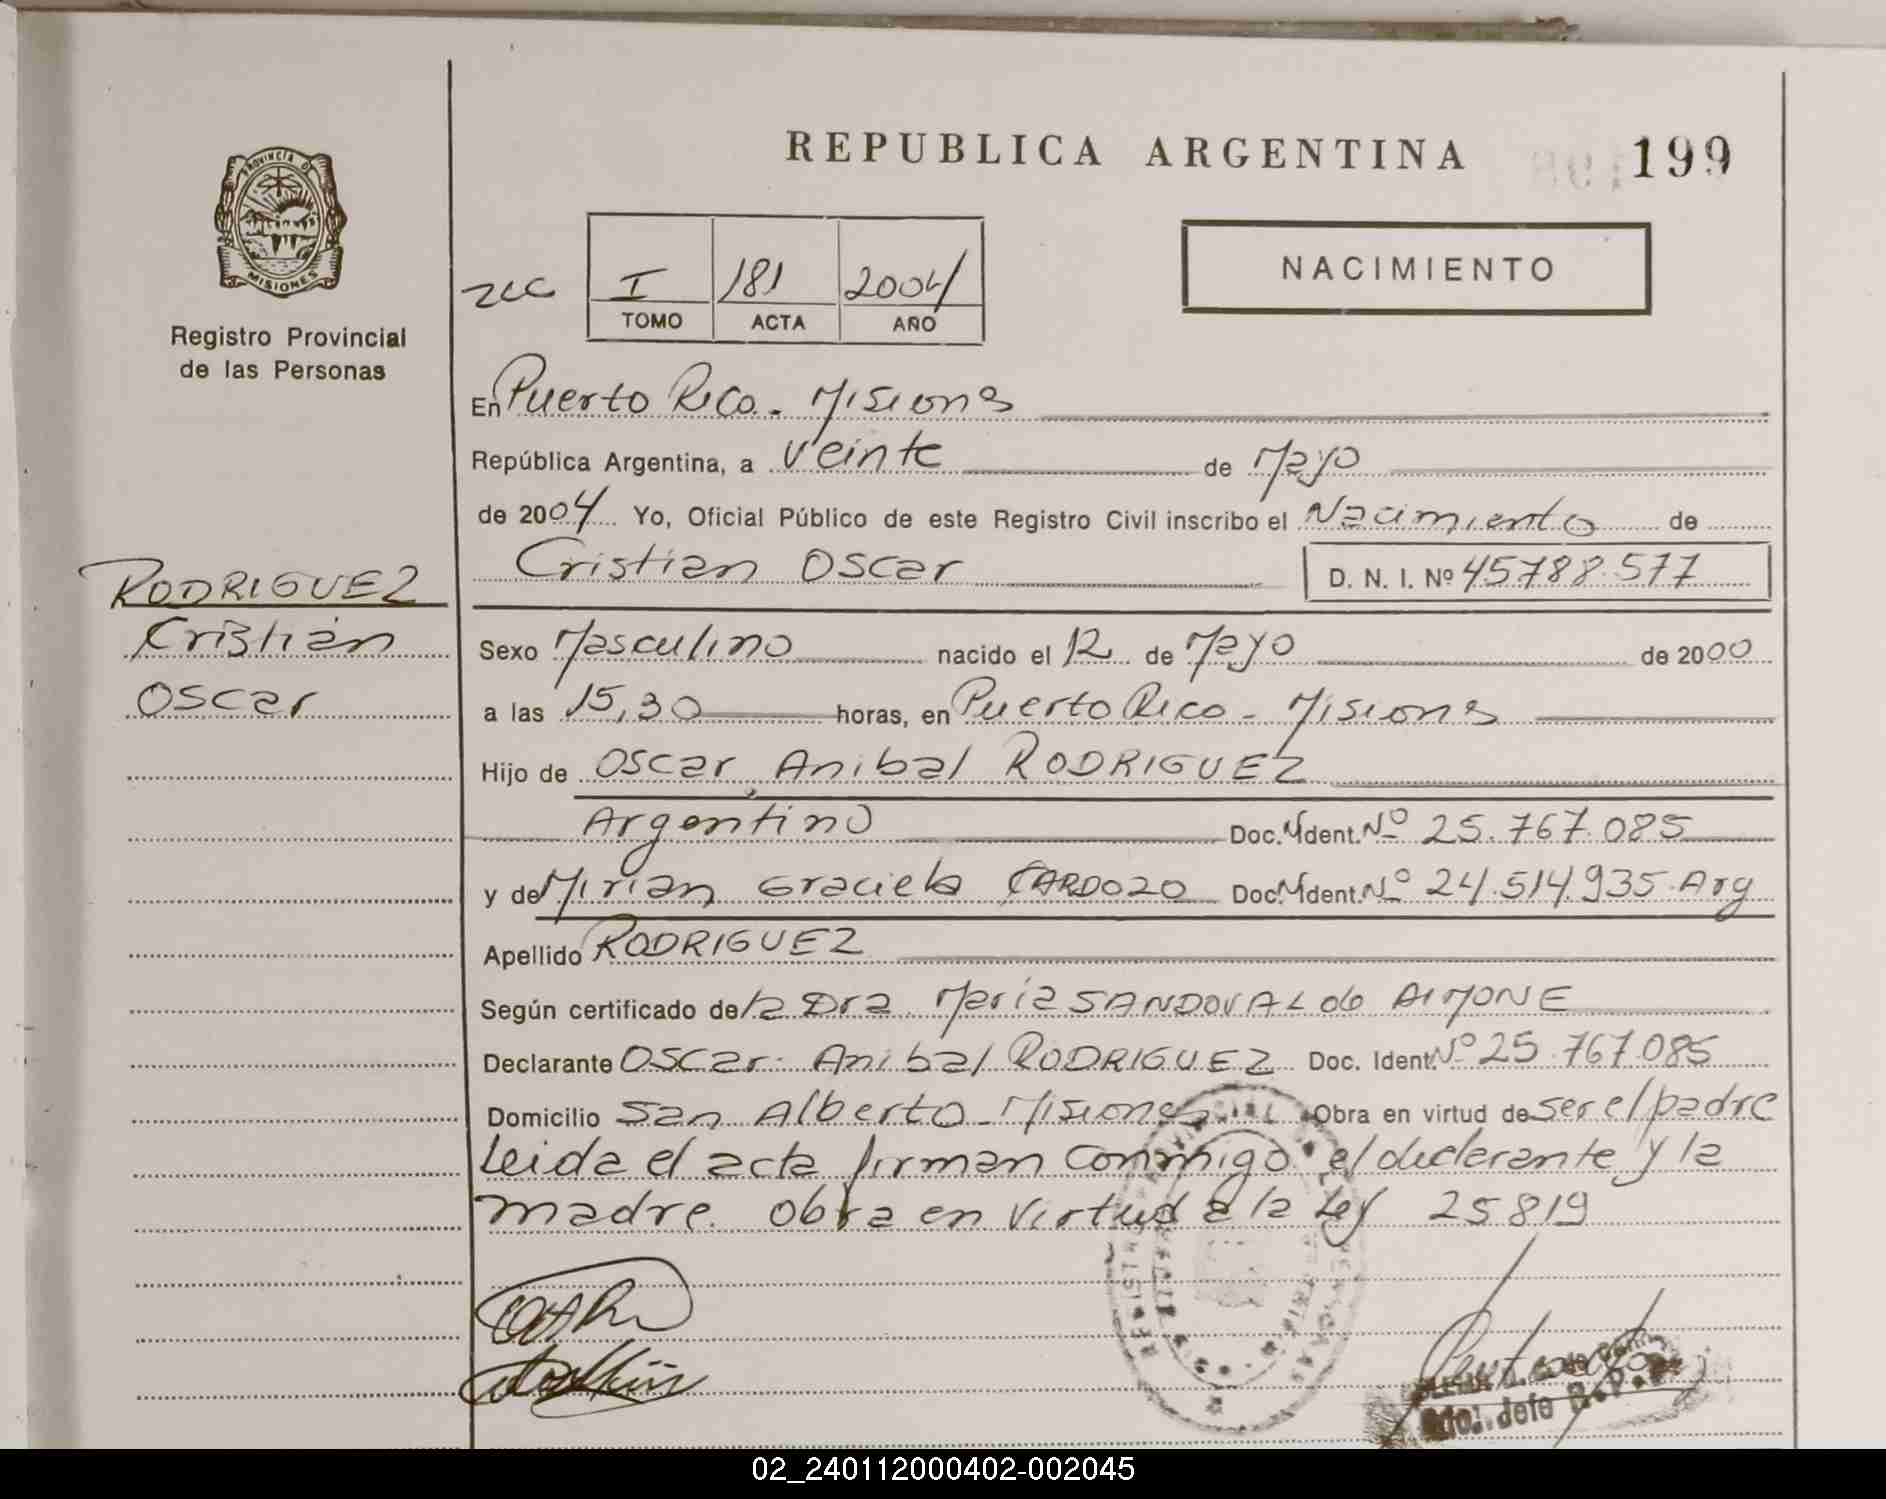 REPUBLICA ARGENTINA 199
PROVINCIA DE
MISIONES
Registro Provincial
de las Personas
NACIMIENTO
I 181 2004
TOMO ACTA AÑO
En Puerto Rico - Misiones
República Argentina, a veinte de Mayo
de 2004 Yo, Oficial Público de este Registro Civil inscribo el Nacimiento de
Cristian Oscar D. N. I. Nº 45788.577
RODRIGUEZ
Cristian
Oscar
Sexo Masculino nacido el 12 de Mayo de 2000
a las 15,30 horas, en Puerto Rico - Misiones
Hijo de Oscar Anibal RODRIGUEZ
Argentino Doc. Ident. Nº 25.767.085
y de Mirian Graciela CARDOZO Doc. Ident. Nº 24.514.935 Arg
Apellido RODRIGUEZ
Según certificado de la Dra Maria SANDOVAL de AIMONE
Declarante Oscar Anibal RODRIGUEZ Doc. Ident. Nº 25.767.085
Domicilio San Alberto - Misiones Obra en virtud de ser el padre
Leida el acta firman conmigo el declarante y la
madre. Obra en virtud a la Ley 25819
02_240112000402-002045